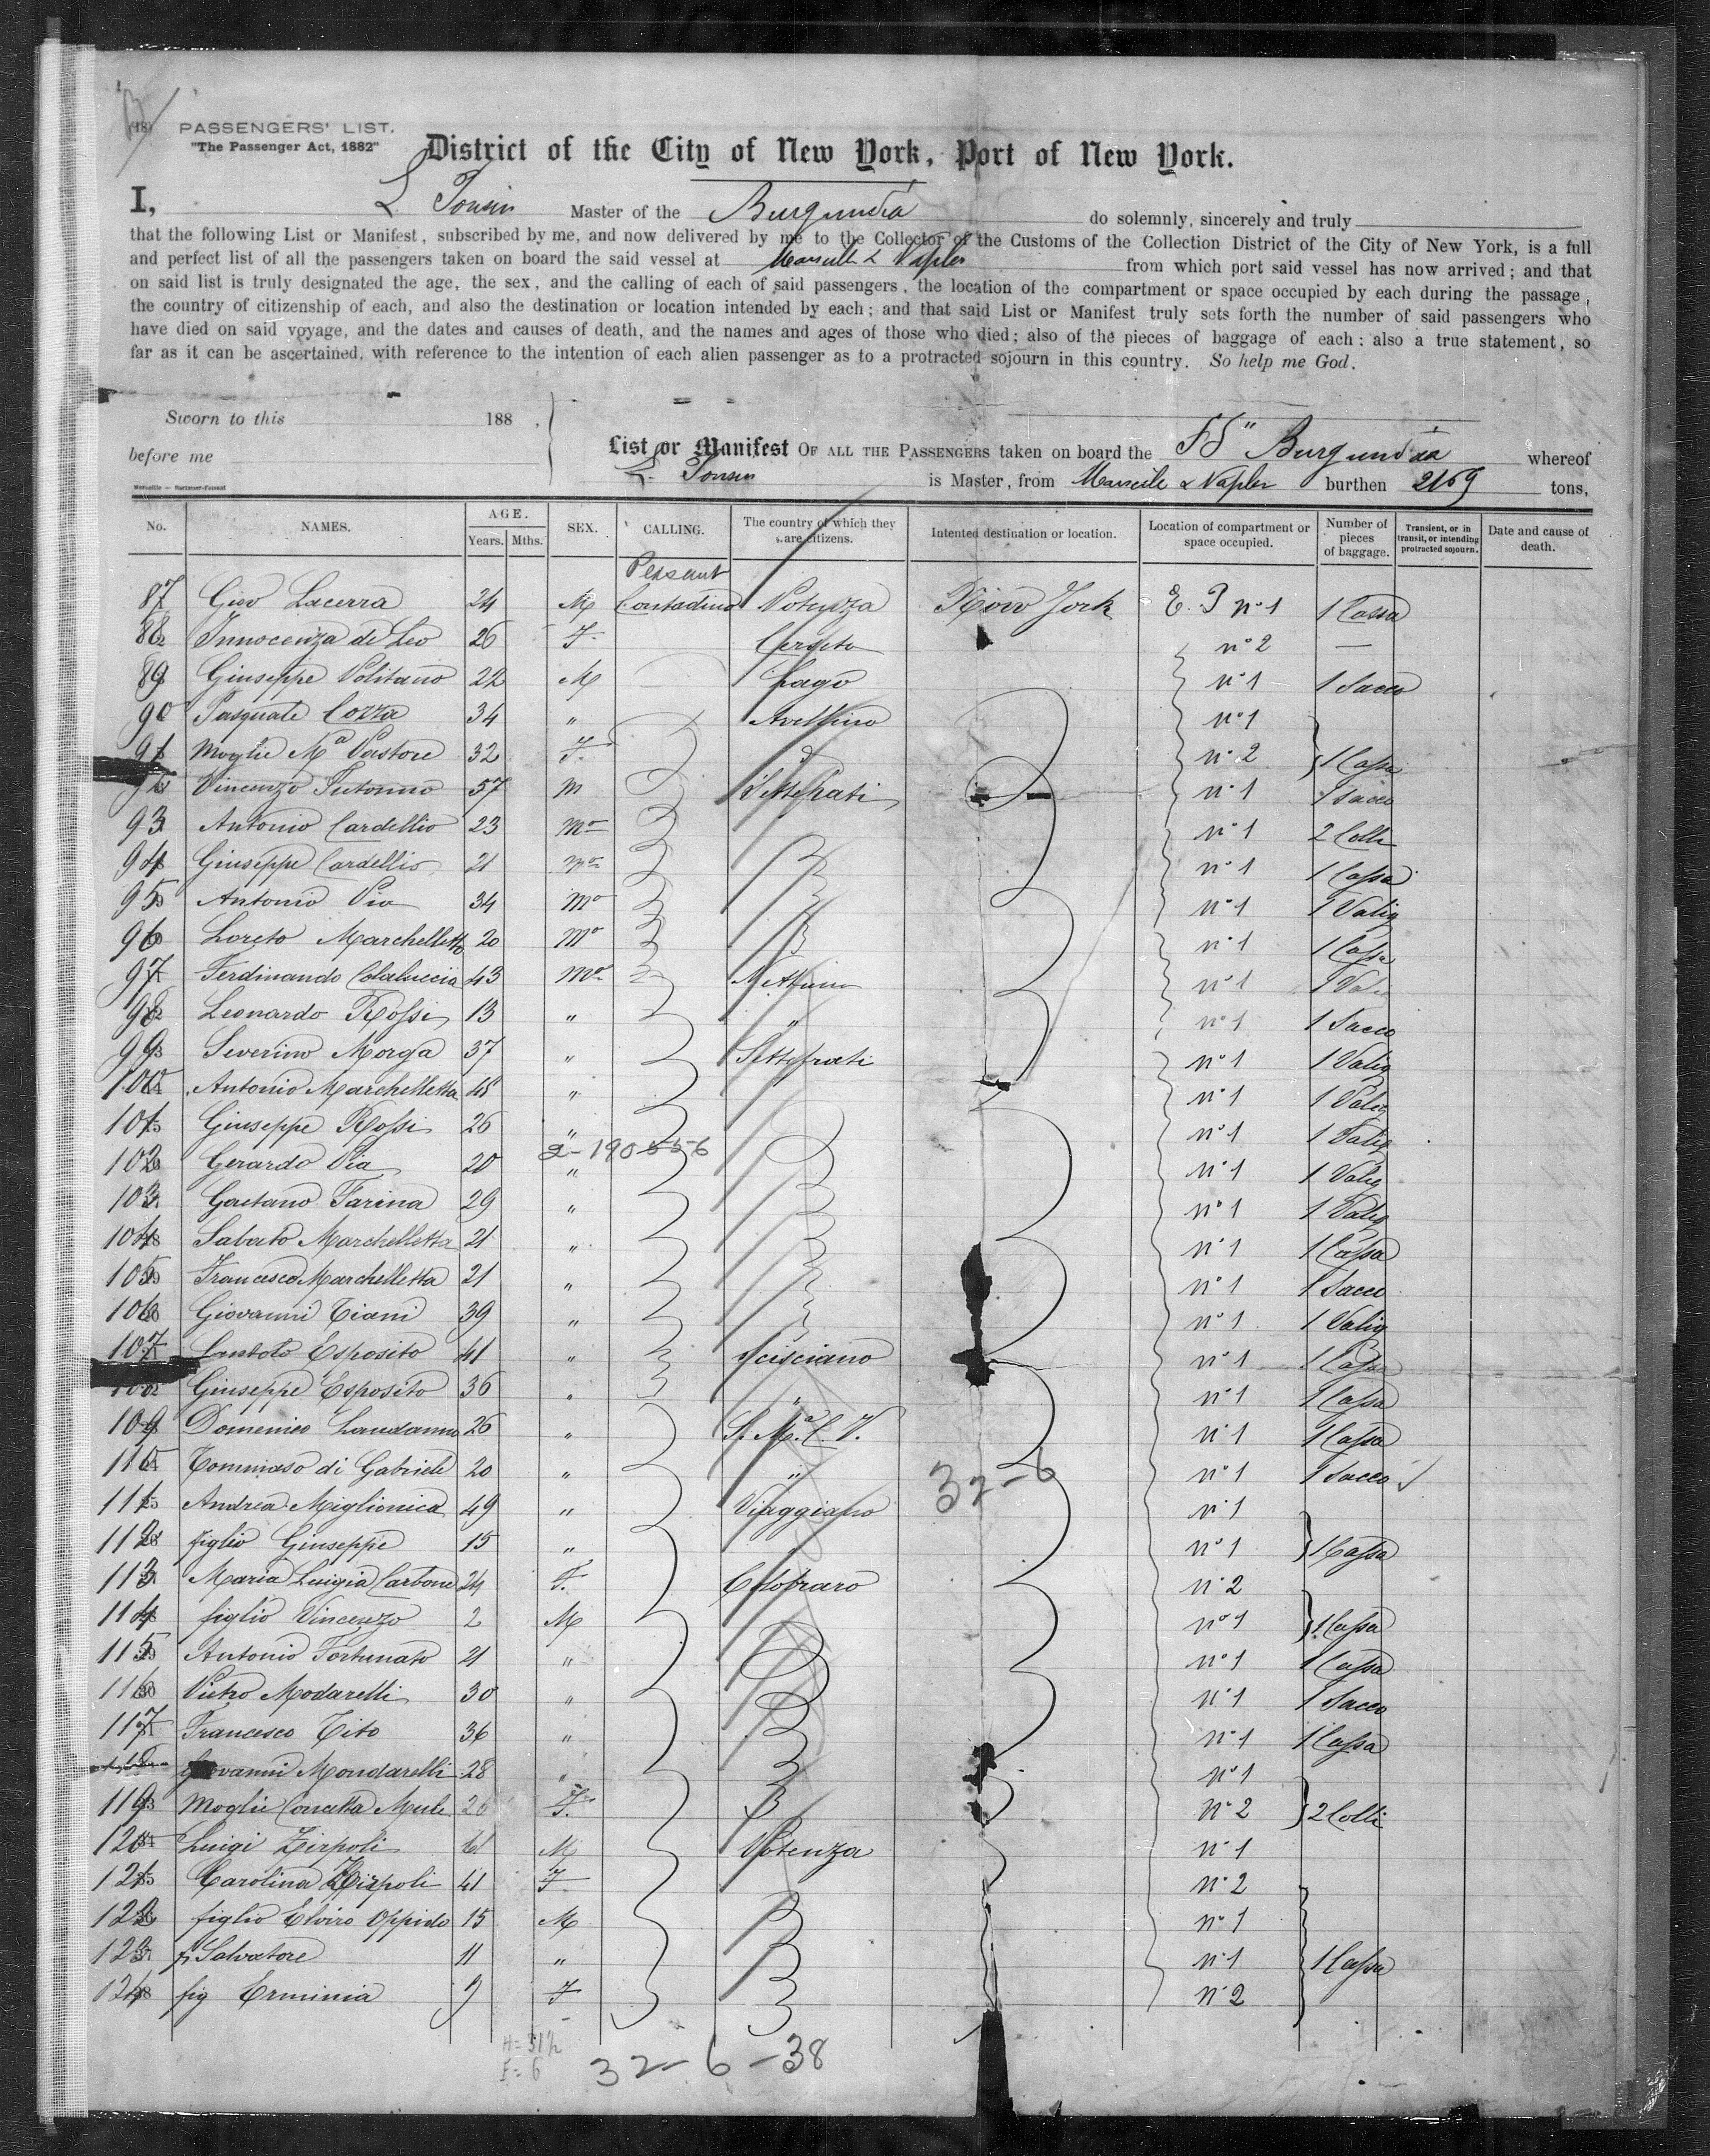 (18)
PASSENGERS' LIST.
"The Passenger Act, 1882"
District of the City of New York, Port of New York.
I, L. Tonsin Master of the Burgundia do solemnly, sincerely and truly
that the following List or Manifest, subscribed by me, and now delivered by me to the Collector of the Customs of the Collection District of the City of New York, is a full
and perfect list of all the passengers taken on board the said vessel at Marseille & Naples from which port said vessel has now arrived; and that
on said list is truly designated the age, the sex, and the calling of each of said passengers, the location of the compartment or space occupied by each during the passage,
the country of citizenship of each, and also the destination or location intended by each; and that said List or Manifest truly sets forth the number of said passengers who
have died on said voyage, and the dates and causes of death, and the names and ages of those who died; also of the pieces of baggage of each: also a true statement, so
far as it can be ascertained, with reference to the intention of each alien passenger as to a protracted sojourn in this country. So help me God.
Sworn to this 188 ,
before me
List or Manifest OF ALL THE PASSENGERS taken on board the SS "Burgundia whereof
L. Tonsin is Master, from Marseile & Naples burthen 2169 tons,
No. NAMES. AGE. Years. Mths. SEX. CALLING. The country of which they are citizens. Intented destination or location. Location of compartment or space occupied. Number of pieces of baggage. Transient, or in transit, or intending protracted sojourn. Date and cause of death.
Peasant
87 Giov Lacerra 24 M Contadino Potenza New York E. P n°1 1 Cassa
88 Innocenza di Leo 26 F Cerreto n°2 —
89 Giuseppe Politano 22 M Lago n°1 1 Sacco
90 Pasquale Cozza 34 " Avellino n°1
91 Moglie Mª Pastore 32 F. " n°2 1 Cassa
92 Vincenzo Tutonno 57 M Settefrati n°1 1 Sacco
93 Antonio Cardellio 23 Mo n°1 2 Colli
94 Giuseppe Cardellio 21 mo n°1 1 Cassa
95 Antonio Via 34 Mo n°1 1 Valig
96 Loreto Marchelletta 20 Mo n°1 1 Cassa
97 Ferdinando Colaluccia 43 Mo n°1 1 Valig
98 Leonardo Rossi 13 " " n°1 1 Sacco
99 Severino Morga 37 " Settefrati n°1 1 Valig
100 Antonio Marchelletta 48 " n°1 1 Valig
101 Giuseppe Rossi 26 " n°1 1 Valig
2-190556
102 Gerardo Via 20 " n°1 1 Valig
103 Gaetano Farina 29 " n°1 1 Valig
104 Sabato Marchelletta 21 " n°1 1 Cassa
105 Francesco Marchelletta 21 " n°1 1 Sacco
106 Giovanni Tiani 39 " n°1 1 Valig
107 Esposito 41 " Scisciano n°1 1 Cassa
108 Giuseppe Esposito 36 " " n°1 1 Cassa
109 Domenico Laudanno 26 " S. Mª C. V. n°1 1 Cassa
110 Tommaso di Gabriele 20 " " n°1 1 Sacco
32-6
111 Andrea Miglionica 49 " Viaggiano n°1
112 figlio Giuseppe 15 " " n°1 1 Cassa
113 Maria Luigia Carbone 24 F. Colobraro n°2
114 figlio Vincenzo 2 M n°1 1 Cassa
115 Antonio Fortunato 21 " n°1 1 Cassa
116 Pietro Modarelli 30 " n°1 1 Sacco
117 Francesco Tito 36 " n°1 1 Cassa
Giovanni Mondarelli 28 " n°1
119 Moglie Concetta Mele 26 F. n°2 2 Colli
120 Luigi Zirpoli 61 M Potenza n°1
121 Carolina Zirpoli 41 F n°2
122 figlio Elviro Oppido 15 M n°1
123 f. Salvatore 11 " n°1 1 Cassa
124 fig Erminia 9 F n°2
32-6-38